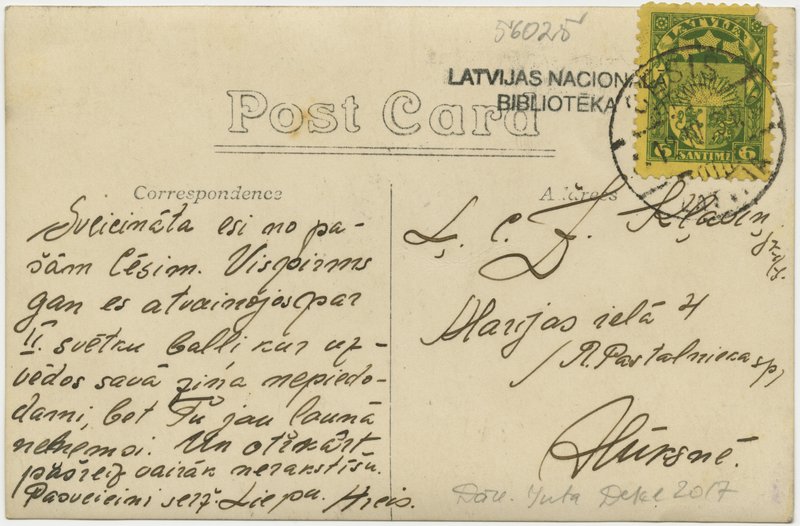 56025
LATVIJAS NACIONĀ
BIBLIOTĒKA
LATVIJA
6 SANTIMI 6
CĒSIS
Post Card
Correspondence
Address
Sveicināta esi no pa-
šām Cēsim. Vispirms
gan es atvainojos par
II. svētku balli kur uz-
vedos savā ziņā nepiedo-
dami, bet Tu jau launā
neņemsi. Un otrkārt
pašreiz vairāk nerakstīšu.
Pasveicini serž. Liepa.
Ļ. C. Z. Kļaviņ
jdzei.
Marijas ielā 4
/R. Pastalnieka sp/
Alūksnē.
Dāv. Juta Deksne 2017